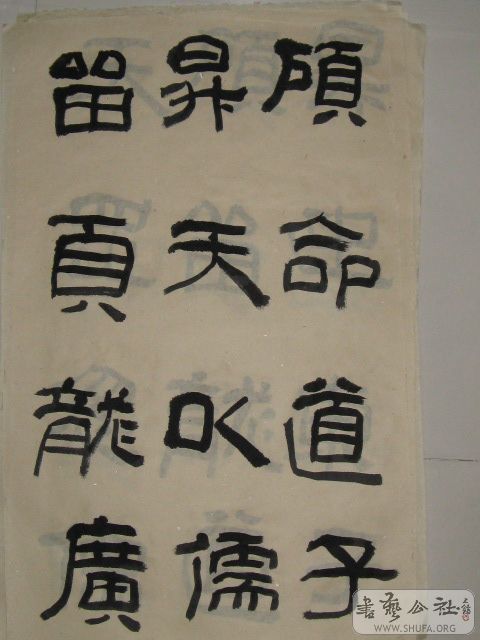 碩命道子
昇天以儒
留頁龍廣
書藝公社
WWW.SHUFA.ORG